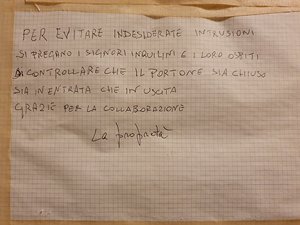 PER EVITARE INDESIDERATE INTRUSIONI
SI PREGANO I SIGNORI INQUILINI E I LORO OSPITI
DI CONTROLLARE CHE IL PORTONE SIA CHIUSO
SIA IN ENTRATA CHE IN USCITA
GRAZIE PER LA COLLABORAZIONE
La proprietà